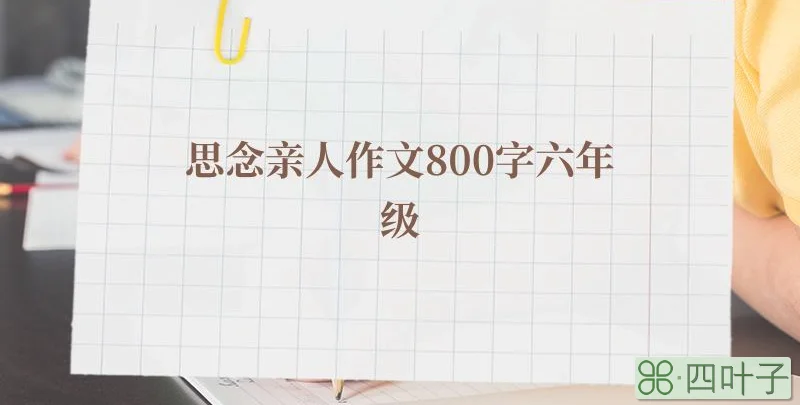 思念亲人作文800字六年
级
⌘·四叶子